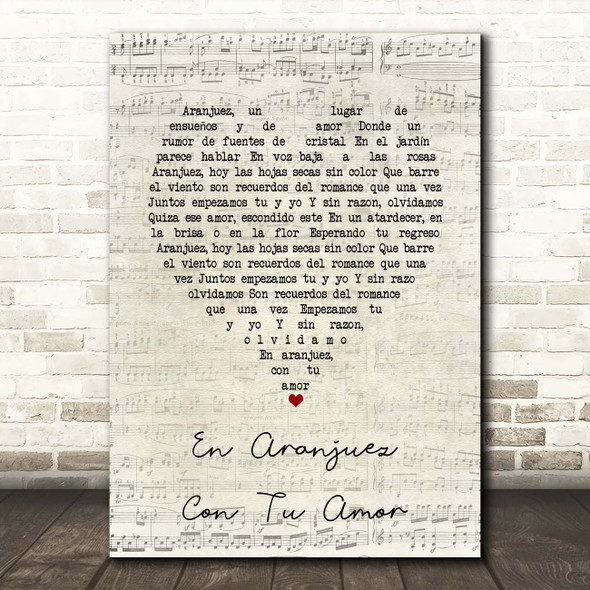 Aranjuez, un lugar de
ensueños y de amor Donde un
rumor de fuentes de cristal En el jardín
parece hablar En voz baja a las rosas
Aranjuez, hoy las hojas secas sin color Que barre
el viento son recuerdos del romance que una vez
Juntos empezamos tu y yo Y sin razon, olvidamos
Quiza ese amor, escondido este En un atardecer, en
la brisa o en la flor Esperando tu regreso
Aranjuez, hoy las hojas secas sin color Que barre
el viento son recuerdos del romance que una
vez Juntos empezamos tu y yo Y sin razo
olvidamos Son recuerdos del romance
que una vez Empezamos tu
y yo Y sin razon,
olvidamo
En aranjuez,
con tu
amor
En Aranjuez
Con Tu Amor